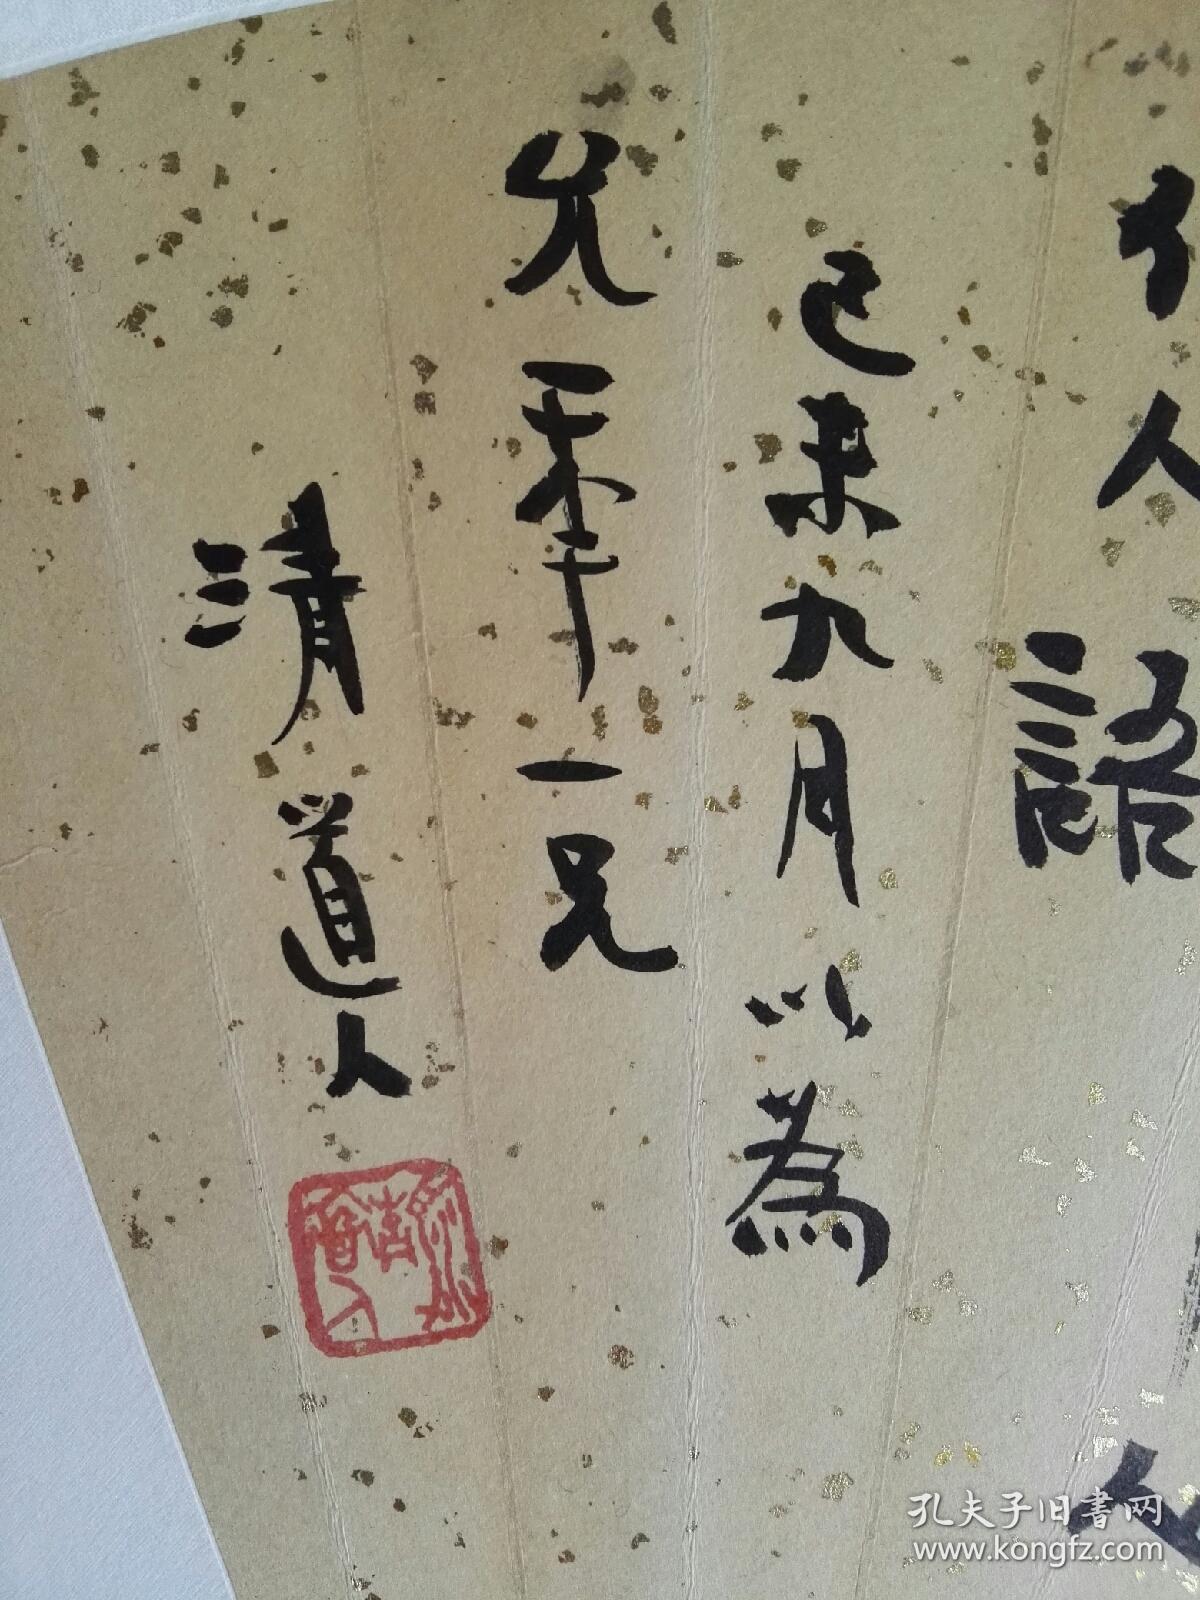 人語
己未九月以為
先奉一兄
清道人
孔夫子旧書网
www.kongfz.com